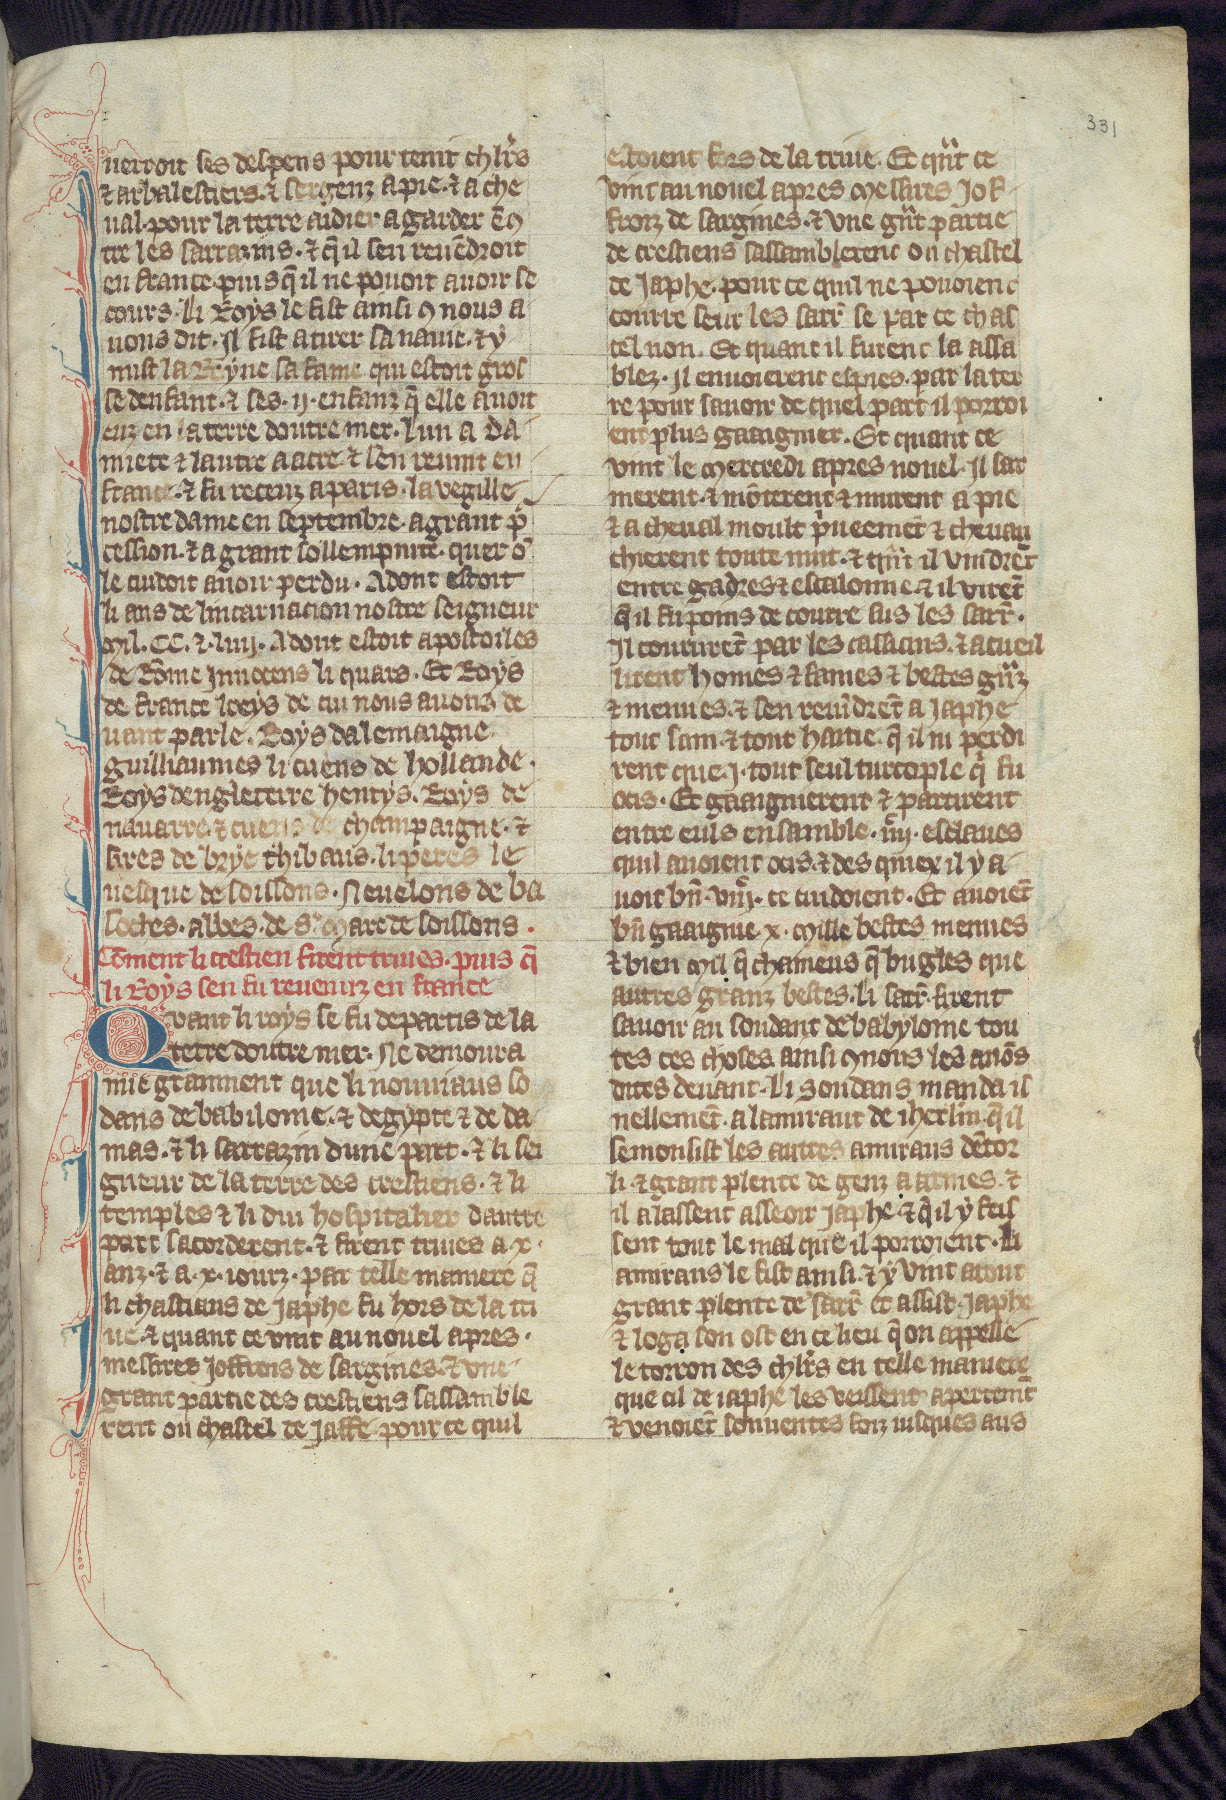 331
uerroit ses despens pour tenir chl'rs
⁊ arbalestiers. ⁊ sergenz a pie. ⁊ a che
ual. pour la terre aidier a garder cō
tre les sarrazins. ⁊ q̄ il sen reuēdroit
en france. puis q̄ il ne pouoit auoir se
cours. li Roys le fist ainsi ꝯ nous a
uons dit. Il fist atirer sa nauie. ⁊ y
mist la Royne sa fame qui estoit gros
se denfant. ⁊ ses .ij. enfanz q̄ elle auoit
euz en la terre doutre mer. lun a Da
miete ⁊ lautre a acre. ⁊ sen reuint en
france. ⁊ fu receuz a paris. la vegille
nostre dame en septembre. a grant p̄
cession. ⁊ a grant sollempnite. quer ō
le cuidoit auoir perdu. Adont estoit
li ans de lincarnacion nostre seigneur
Mil. CC. ⁊ liiij. Adont estoit apostoiles
de Rōme Innocens li quars. Et Roys
de france loeys de cui nous auons de
uant parle. Roys dalemaigne
guilliaumes li cuens de hollande.
Roys dengleterre henrys. Roys de
nauarre. ⁊ cuens de champaigne. ⁊
sires de brye thibaus. li peres le
uesque de soissons. Neuelons de ba
soches. abbes. de s. Marc de soissons.
Cōment li crestien firent triues. puis q̄
li Roys sen fu reuenuz en france
Quant li roys se fu departis de la
terre doutre mer. Ne demoura
mie granment que li nouuiaus so
dans de babiloine. ⁊ degypte ⁊ de da
mas. ⁊ li sarrazin dune part. ⁊ li sei
gneur de la terre des crestiens. ⁊ li
temples ⁊ li dui hospitalier dautre
part sacorderent. ⁊ firent triues a .x.
anz. ⁊ a .x. iourz. par telle maniere q̄
li chastiaus de Japhe fu hors de la tri
ue. ⁊ quant ce vint au nouel apres.
messires Joffrois de sargines. ⁊ vne
grant partie des crestiens sassamble
rent ou chastel de Jaffe. pour ce quil
estoient fors de la triue. Et qn̄t ce
vint au nouel apres Messires Jof
froiz de sargines. ⁊ vne gn̄t partie
de crestiens sassamblerent ou chastel
de Japhe. pour ce quil ne pouoient
courre seur les sarr̄ se par ce chas
tel non. Et quant il furent la assa
blez. Il enuoierent espies. par la ter
re pour sauoir de quel part il porroi
ent plus gaaignier. Et quant ce
vint le Mercredi apres nouel. Il sar
merent. ⁊ mōterent ⁊ murent a pie
⁊ a cheual moult priueemēt ⁊ cheuau
chierent toute nuit. ⁊ qn̄t il vindrēt
entre gadres ⁊ escalonne. ⁊ il virēt
q̄ il fu poins de courre sus les sarr̄.
Il coururēt par les casiaus. ⁊ acueil
lirent homes ⁊ fames ⁊ bestes gn̄z
⁊ menues. ⁊ sen reuīdrēt a Japhe
tout sain. ⁊ tout haitie. q̄ il ni perdi
rent que .j. tout seul turcople q̄ fu
ocis. Et gaaignierent ⁊ partirent
entre euls ensamble. iiij. esclaues
quil auoient ocis. ⁊ des quiex il y a
uoit bn̄ .viij. ce cuidoient. Et auoiēt
bn̄ gaaignie .x. Mille bestes menues
⁊ bien Mil q̄ chameus q̄ bugles que
autres granz bestes. li sarr̄. firent
sauoir au soudant de babyloine tou
tes ces choses ainsi ꝯ nous les auōs
dites deuant. Li soudans manda is
nellemēt. a lamiraut de iherlm̄. q̄ il
semonsist les autres amiraus dētor
li. ⁊ grant plente de genz a armes. ⁊
il alassent asseoir Japhe. ⁊ q̄ il y feis
sent tout le mal que il porroient. Li
amiraus le fist ainsi. ⁊ y vint atout
grant plente de sarr̄ et assist Japhe
⁊ loga son ost en ce lieu q̄ on appelle
le torron des chl'rs en telle maniere
que cil de iaphe les veissent apertemēt
⁊ venoiēt souuentes foiz iusques aus